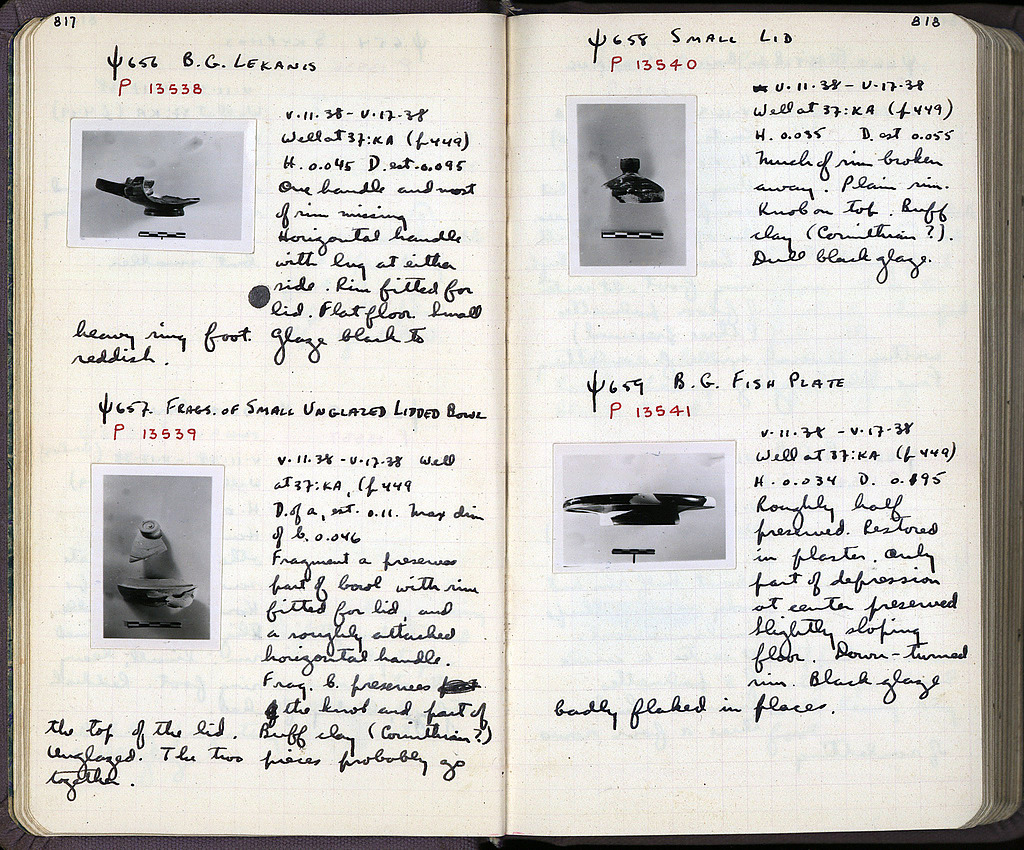 817
ψ656 B.G. LEKANIS
P 13538
V.11.38 – V.17.38
Well at 37:KA (f 449)
H. 0.045 D. est. 0.095
One handle and most
of rim missing
Horizontal handle
with lug at either
side. Rim fitted for
lid. Flat floor. Small
heavy ring foot. Glaze black to
reddish.
ψ657. FRAGS. OF SMALL UNGLAZED LIDDED BOWL
P 13539
V.11.38 – V.17.38 Well
at 37:KA, (f 449
D. of a, est. 0.11. Max dim
of b. 0.046
Fragment a preserves
part of bowl with rim
fitted for lid, and
a roughly attached
horizontal handle.
Frag. b. preserves
the knob and part of
the top of the lid. Buff clay (Corinthian?)
Unglazed. The two pieces probably go
together.
818
ψ658 SMALL LID
P 13540
V.11.38 – V.17.38
Well at 37:KA (f 449)
H. 0.035 D. est 0.055
Much of rim broken
away. Plain rim.
Knob on top. Buff
clay (Corinthian?).
Dull black glaze.
ψ659 B.G. FISH PLATE
P 13541
V.11.38 – V.17.38
Well at 37:KA (f 449)
H. 0.034 D. 0.195
Roughly half
preserved. Restored
in plaster. Only
part of depression
at center preserved
Slightly sloping
floor. Down-turned
rim. Black glaze
badly flaked in places.